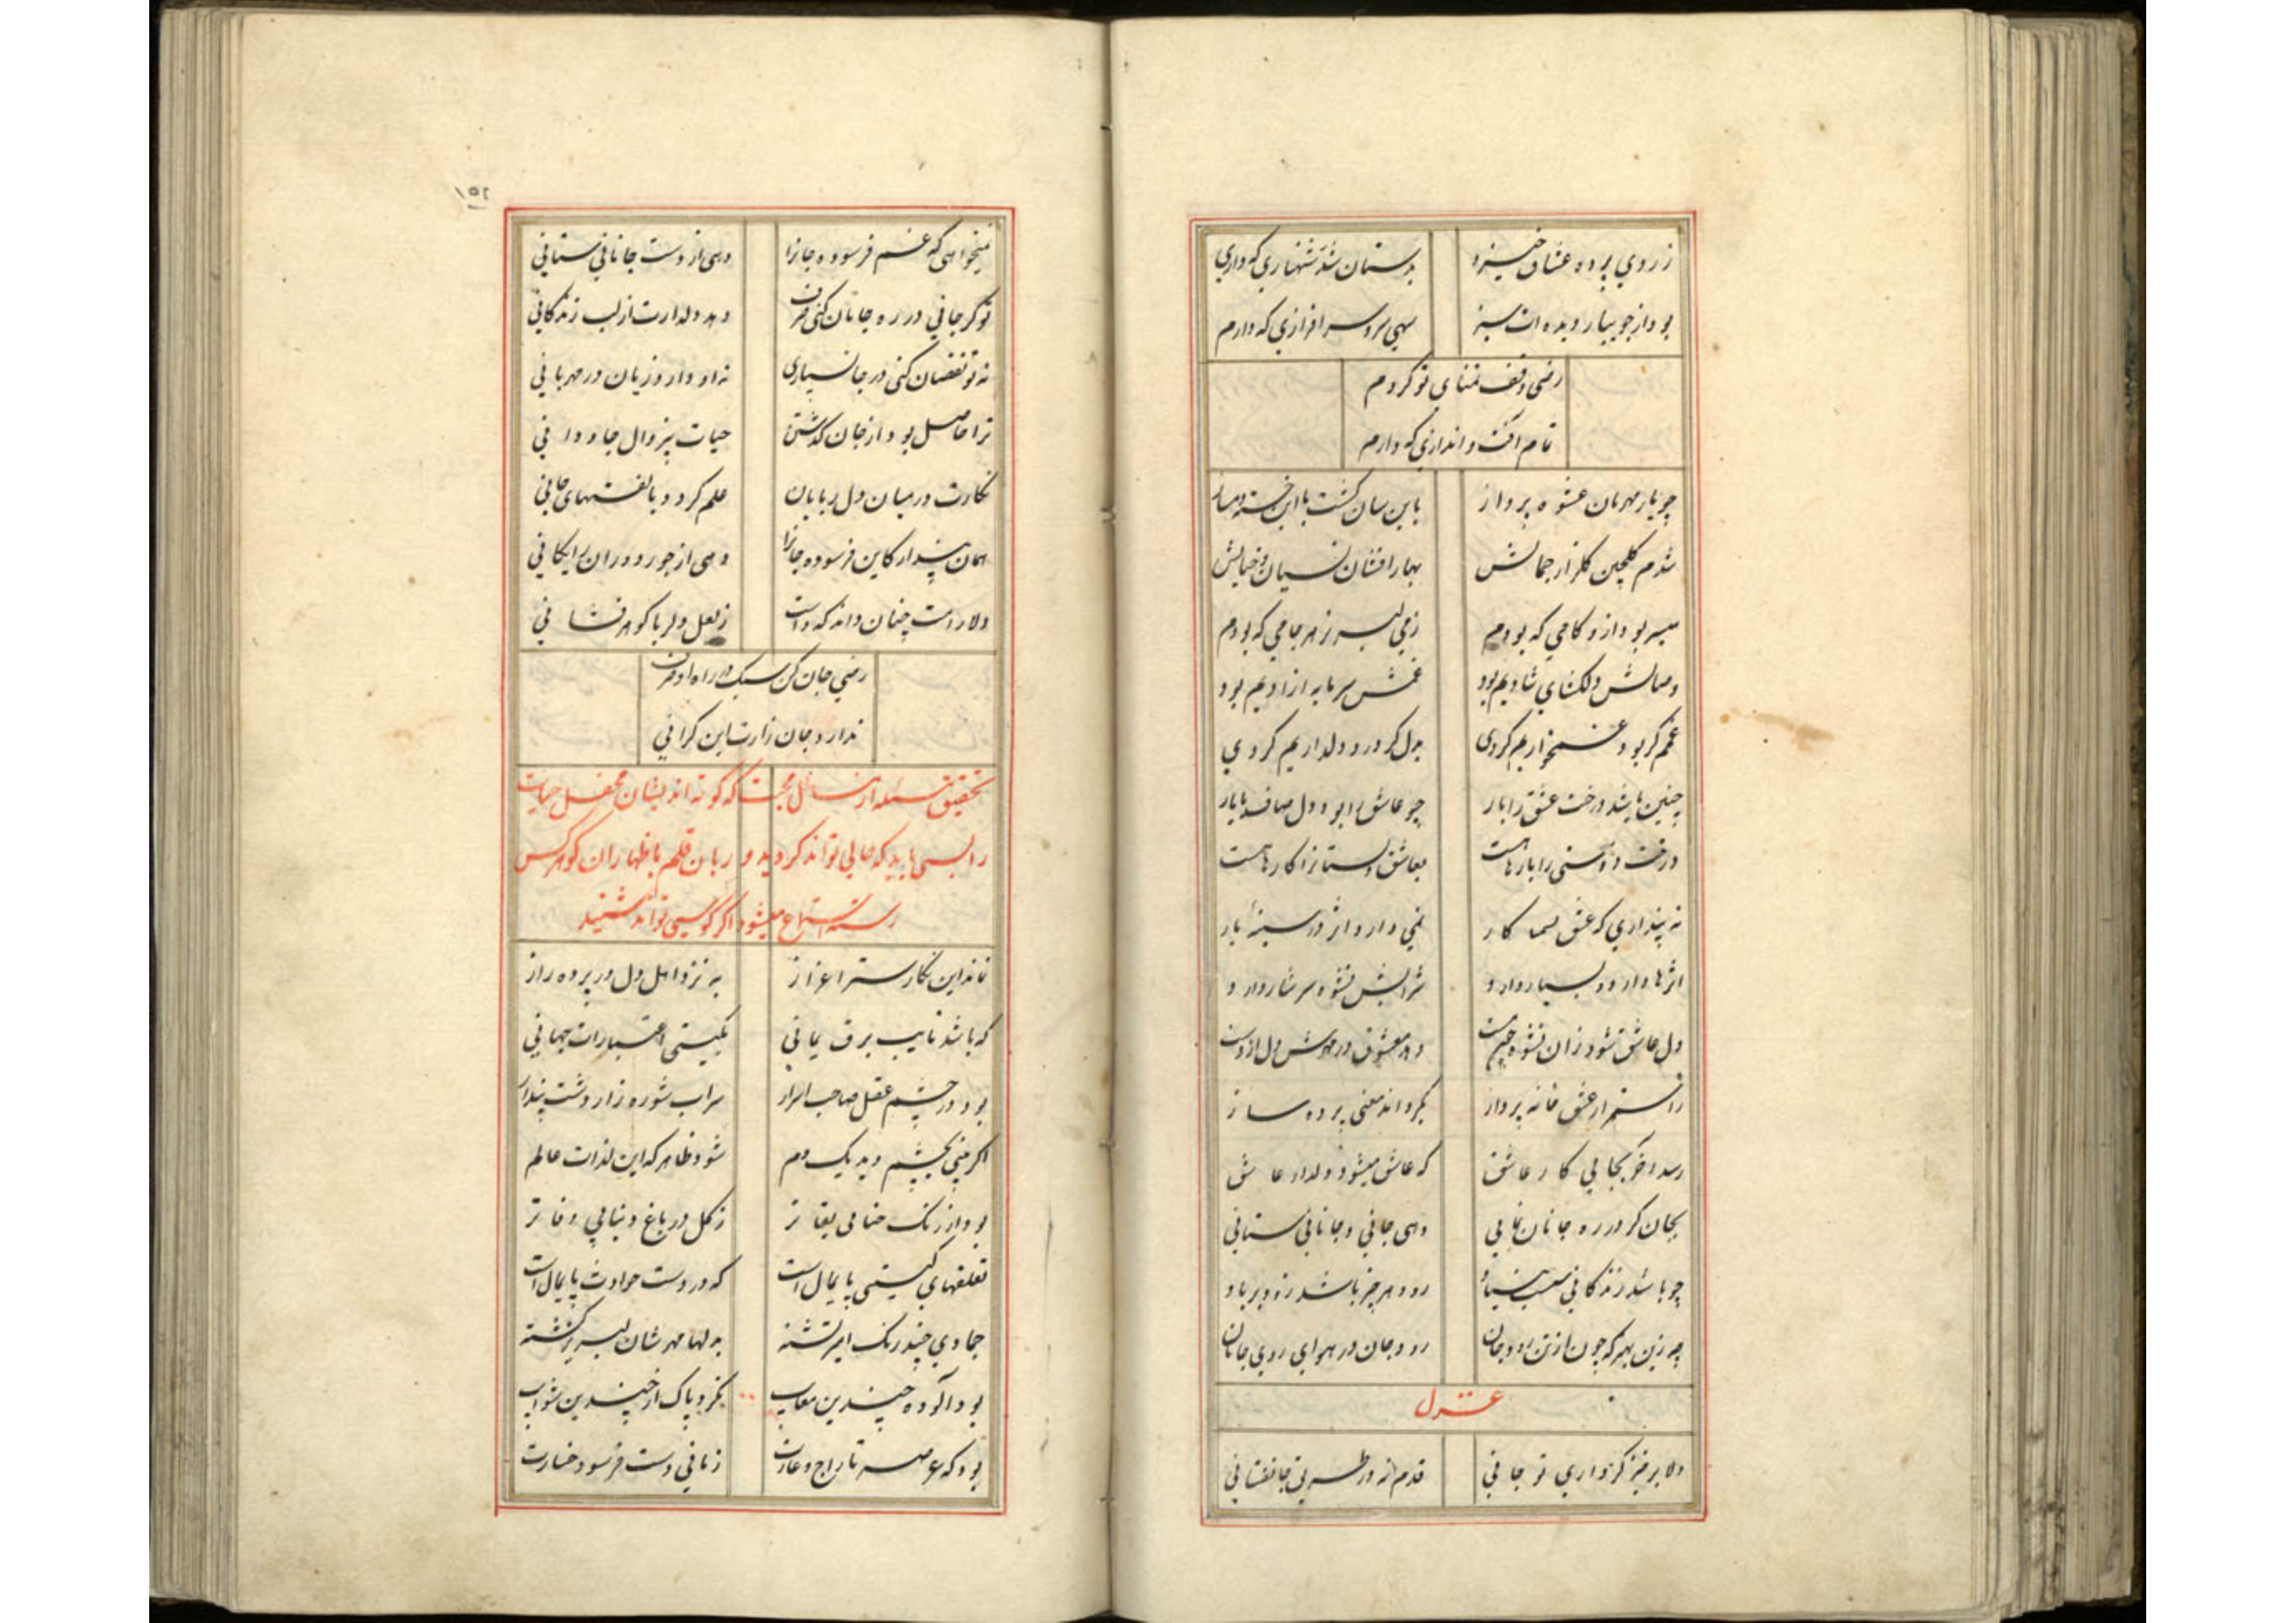 ز روی پرده عشاق خیزد
بدستان شد شنهازی که داری
بود از جویبار دیده ات سبز
سهی سرو سرافرازی که دارم
رضی وقف تمنای تو کردم
تمام اکت و اندازی که دارم
چو یار مهربان عشوه پرداز
باین سان کشت با این خسته دمساز
شدم کلچین کلزار جمالش
بهار افشان نسیان خیالش
میسر بود ازو کامی که بودم
زمی لبریز هر جامی که بودم
وصالش دلکشای شادیم بود
غمش سرمایه ازادیم بود
غمم کر بود غمخواریم کردی
بدل کر درد دلداریم کردی
چنین باشد درخت عشق را بار
چو عاشق را بود دل صاف با یار
درخت دوستی را بارها هست
بعاشق دلستانرا کارها هست
نه پنداری که عشق
نمی دارد اثر در سینهٔ یار
اثرها دارد و بسیار دارد
شرابش نشوه سرشار دارد
دل عاشق شود زان نشوه چون مست
دهد معشوق در مهرش دل از دست
عشق خانه پرداز
بکرداند معنی پرده ساز
رسد اخر بجایی کار عاشق
که عاشق میشود دلدار عاشق
بجان کر در ره جانان نمایی
دهی جانی و جانانی ستانی
چو باشد زندکانی سست بنیاد
رود هر چیز باشد زود بر باد
چه زین بهتر که چون از تن رود جان
رود جان در هوای روی جانان
غزل
دلا برخیز کر داری تو جانی
قدم نه در طریق جانفشانی
۱۵۲
نمیخواهی که غم فرسوده جانرا
دهی از دست جانانی ستانی
تو کر جانی در ره جانان کنی صرف
دهد دلدارت از لب زندکانی
نه تو نقصان کنی در جانسپاری
نه او دارد زیان در مهربانی
ترا حاصل بود از جان کذشتن
حیات بیزوال جاودانی
نکارت در میان دل ربایان
علم کردد بالفتهای جانی
همان پندار کاین فرسوده جانرا
دهی از جور دوران رایکانی
دلارامت چنان داند که دانست
ز لعل دلربا کوهر فشانی
رضی جان کن سبک در راه او صرف
ندارد جان زارت این کرانی
تحقیق مسئله از مسائل محبت که کوته اندیشان محفل حیات
را بسی باید که حالی تواند کردید و زبان قلم باظهار ان کوهر کس
رشته استماع میشود اگر کوسی تواند شنید
نماند این نکارستر اغزاز
به نزد اهل دل در پرده راز
که باشد نایب برق یمانی
بکیتی اعتبارات جهانی
بود در چشم عقل صاحب اسرار
سراب شوره زار دشت پندار
اکر بینی بچشم دید یک دم
شود ظاهر که این لذات عالم
بود از رنک حنا بی بقا تر
ز کل در باغ دنیا بی وفا تر
تعلقهای کیتی پایمال است
که در دست حوادث پایمال است
جمادی چند رنک امیز کشته
بدلها مهرشان لبریز کشته
بود آلوده چندین معایب
نکردد پاک از چندین شوایب
بود که عرصه تاراج و غارت
زمانی دست فرسود خسارت